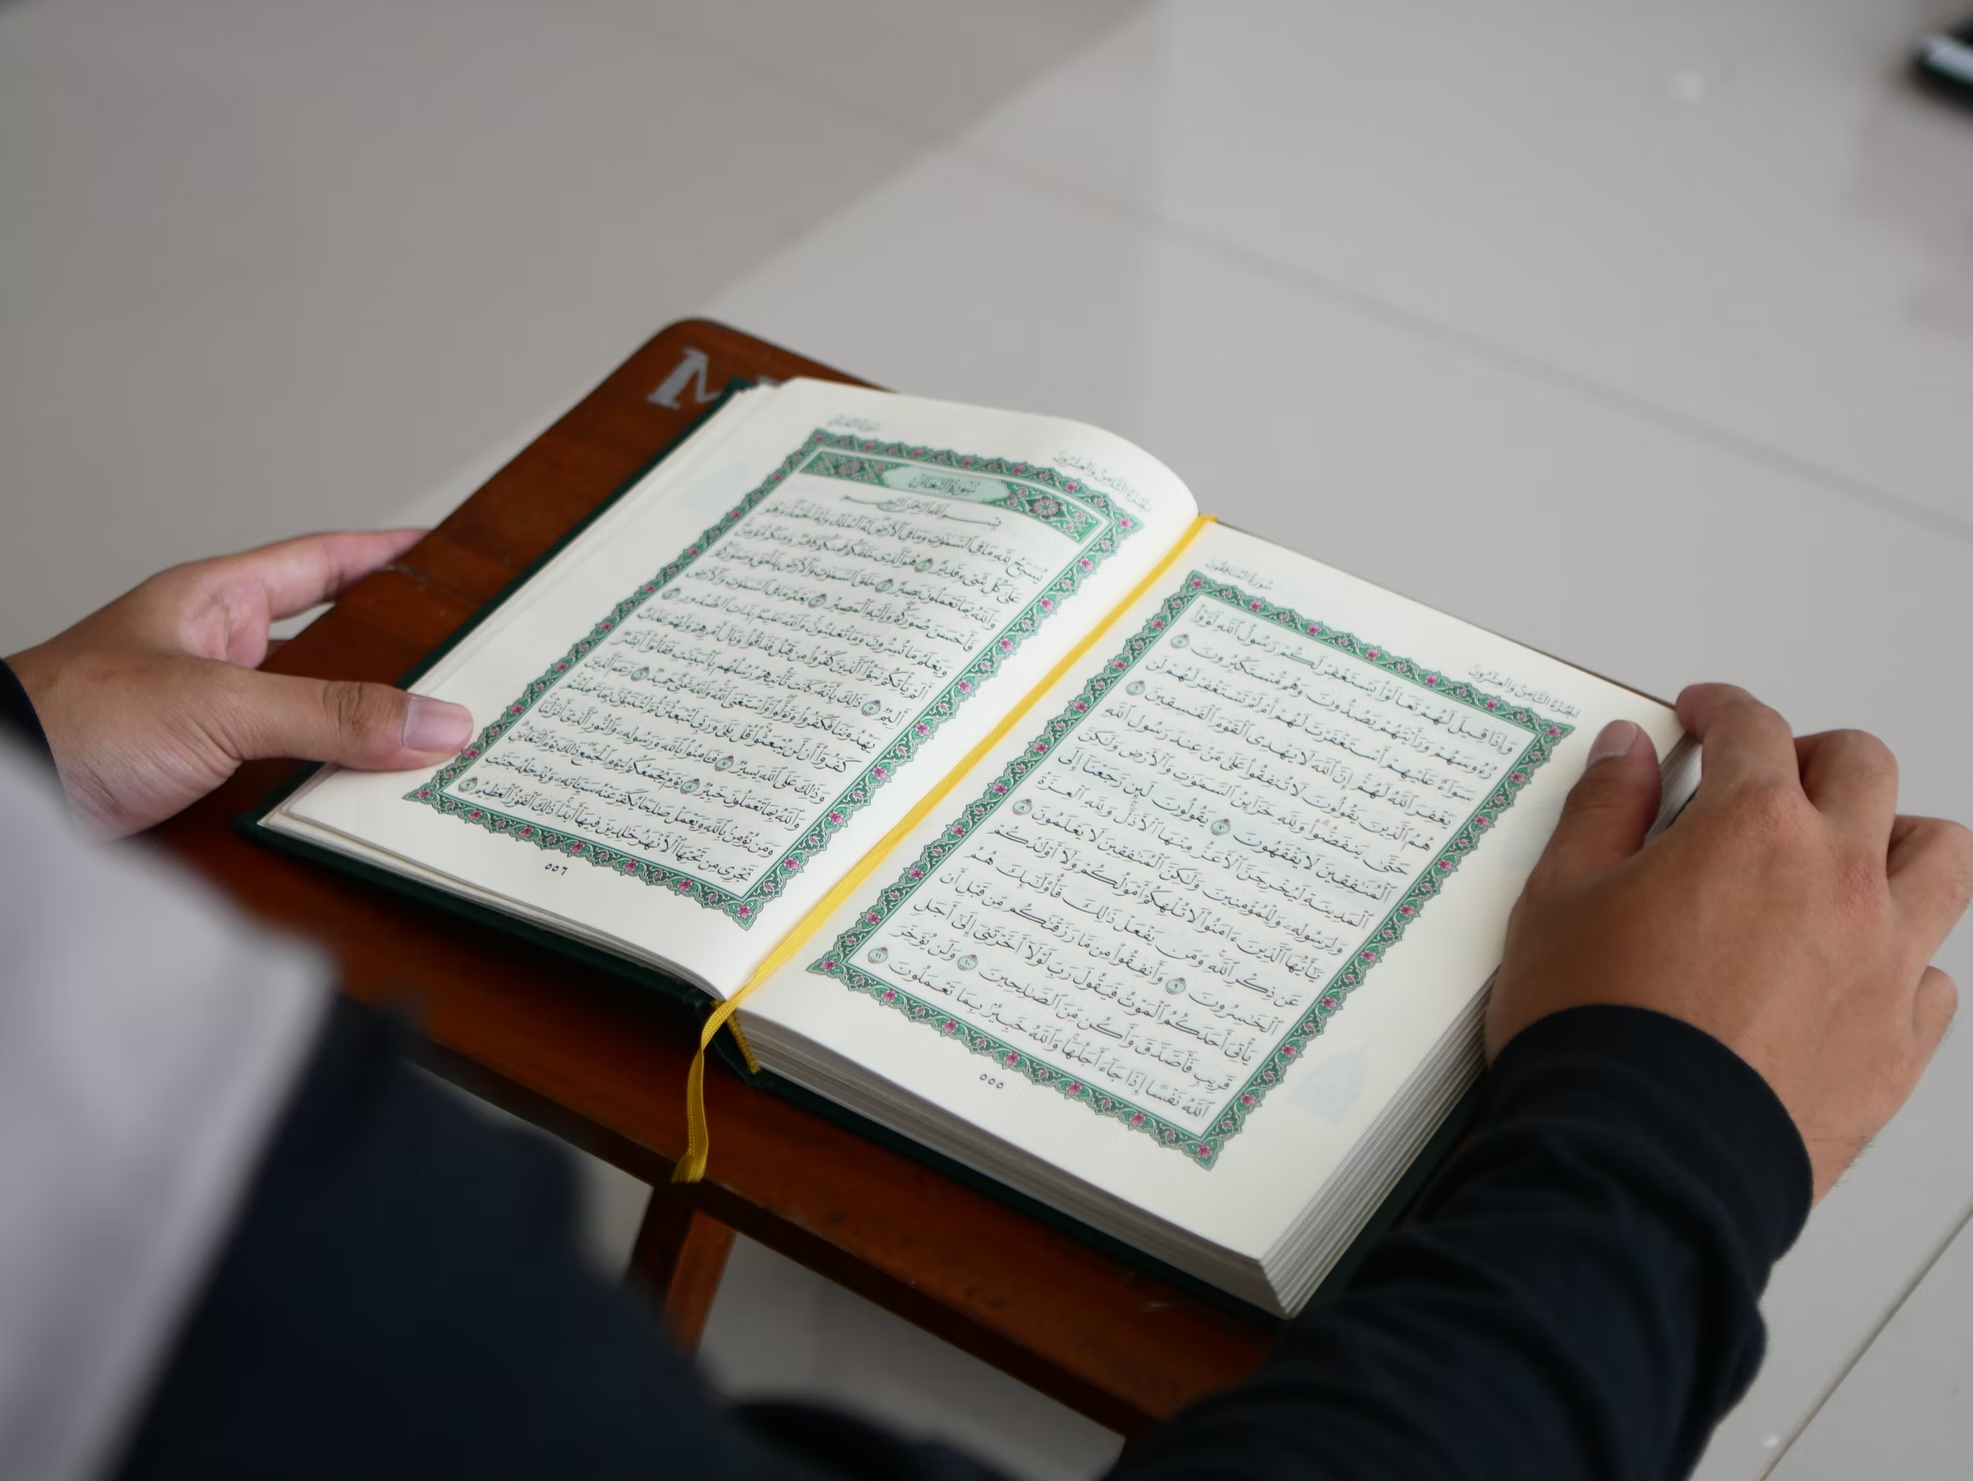 M
الجُزْءُ الثَّامِنُ وَالعِشْرُونَ
سُورَةُ المُنَافِقُونَ
وَإِذَا قِيلَ لَهُمْ تَعَالَوْا۟ يَسْتَغْفِرْ لَكُمْ رَسُولُ ٱللَّهِ لَوَّوْا۟
رُءُوسَهُمْ وَرَأَيْتَهُمْ يَصُدُّونَ وَهُم مُّسْتَكْبِرُونَ ٥
سَوَآءٌ عَلَيْهِمْ أَسْتَغْفَرْتَ لَهُمْ أَمْ لَمْ تَسْتَغْفِرْ لَهُمْ لَن
يَغْفِرَ ٱللَّهُ لَهُمْ إِنَّ ٱللَّهَ لَا يَهْدِى ٱلْقَوْمَ ٱلْفَٰسِقِينَ ٦
هُمُ ٱلَّذِينَ يَقُولُونَ لَا تُنفِقُوا۟ عَلَىٰ مَنْ عِندَ رَسُولِ ٱللَّهِ
حَتَّىٰ يَنفَضُّوا۟ وَلِلَّهِ خَزَآئِنُ ٱلسَّمَٰوَٰتِ وَٱلْأَرْضِ وَلَٰكِنَّ
ٱلْمُنَٰفِقِينَ لَا يَفْقَهُونَ ٧ يَقُولُونَ لَئِن رَّجَعْنَآ إِلَى
ٱلْمَدِينَةِ لَيُخْرِجَنَّ ٱلْأَعَزُّ مِنْهَا ٱلْأَذَلَّ وَلِلَّهِ ٱلْعِزَّةُ
وَلِرَسُولِهِۦ وَلِلْمُؤْمِنِينَ وَلَٰكِنَّ ٱلْمُنَٰفِقِينَ لَا يَعْلَمُونَ ٨
يَٰٓأَيُّهَا ٱلَّذِينَ ءَامَنُوا۟ لَا تُلْهِكُمْ أَمْوَٰلُكُمْ وَلَآ أَوْلَٰدُكُمْ
عَن ذِكْرِ ٱللَّهِ وَمَن يَفْعَلْ ذَٰلِكَ فَأُو۟لَٰٓئِكَ هُمُ
ٱلْخَٰسِرُونَ ٩ وَأَنفِقُوا۟ مِن مَّا رَزَقْنَٰكُم مِّن قَبْلِ أَن
يَأْتِىَ أَحَدَكُمُ ٱلْمَوْتُ فَيَقُولَ رَبِّ لَوْلَآ أَخَّرْتَنِىٓ إِلَىٰٓ أَجَلٍ
قَرِيبٍ فَأَصَّدَّقَ وَأَكُن مِّنَ ٱلصَّٰلِحِينَ ١٠ وَلَن يُؤَخِّرَ
ٱللَّهُ نَفْسًا إِذَا جَآءَ أَجَلُهَا وَٱللَّهُ خَبِيرٌۢ بِمَا تَعْمَلُونَ ١١
٥٥٥
الجُزْءُ الثَّامِنُ وَالعِشْرُونَ
سُورَةُ التَّغَابُنِ
سُورَةُ التَّغَابُنِ
بِسْمِ ٱللَّهِ ٱلرَّحْمَٰنِ ٱلرَّحِيمِ
يُسَبِّحُ لِلَّهِ مَا فِى ٱلسَّمَٰوَٰتِ وَمَا فِى ٱلْأَرْضِ لَهُ ٱلْمُلْكُ وَلَهُ ٱلْحَمْدُ وَهُوَ
عَلَىٰ كُلِّ شَىْءٍ قَدِيرٌ ١ هُوَ ٱلَّذِى خَلَقَكُمْ فَمِنكُمْ كَافِرٌ وَمِنكُم مُّؤْمِنٌ
وَٱللَّهُ بِمَا تَعْمَلُونَ بَصِيرٌ ٢ خَلَقَ ٱلسَّمَٰوَٰتِ وَٱلْأَرْضَ بِٱلْحَقِّ وَصَوَّرَكُمْ
فَأَحْسَنَ صُوَرَكُمْ وَإِلَيْهِ ٱلْمَصِيرُ ٣ يَعْلَمُ مَا فِى ٱلسَّمَٰوَٰتِ وَٱلْأَرْضِ
وَيَعْلَمُ مَا تُسِرُّونَ وَمَا تُعْلِنُونَ وَٱللَّهُ عَلِيمٌۢ بِذَاتِ ٱلصُّدُورِ ٤
أَلَمْ يَأْتِكُمْ نَبَؤُا۟ ٱلَّذِينَ كَفَرُوا۟ مِن قَبْلُ فَذَاقُوا۟ وَبَالَ أَمْرِهِمْ وَلَهُمْ عَذَابٌ
أَلِيمٌ ٥ ذَٰلِكَ بِأَنَّهُۥ كَانَت تَّأْتِيهِمْ رُسُلُهُم بِٱلْبَيِّنَٰتِ فَقَالُوٓا۟ أَبَشَرٌ
يَهْدُونَنَا فَكَفَرُوا۟ وَتَوَلَّوا۟ وَّٱسْتَغْنَى ٱللَّهُ وَٱللَّهُ غَنِىٌّ حَمِيدٌ ٦ زَعَمَ ٱلَّذِينَ
كَفَرُوٓا۟ أَن لَّن يُبْعَثُوا۟ قُلْ بَلَىٰ وَرَبِّى لَتُبْعَثُنَّ ثُمَّ لَتُنَبَّؤُنَّ بِمَا عَمِلْتُمْ
وَذَٰلِكَ عَلَى ٱللَّهِ يَسِيرٌ ٧ فَـَٔامِنُوا۟ بِٱللَّهِ وَرَسُولِهِۦ وَٱلنُّورِ ٱلَّذِىٓ أَنزَلْنَا
وَٱللَّهُ بِمَا تَعْمَلُونَ خَبِيرٌ ٨ يَوْمَ يَجْمَعُكُمْ لِيَوْمِ ٱلْجَمْعِ ذَٰلِكَ يَوْمُ ٱلتَّغَابُنِ
وَمَن يُؤْمِنۢ بِٱللَّهِ وَيَعْمَلْ صَٰلِحًا يُكَفِّرْ عَنْهُ سَيِّـَٔاتِهِۦ وَيُدْخِلْهُ جَنَّٰتٍ
تَجْرِى مِن تَحْتِهَا ٱلْأَنْهَٰرُ خَٰلِدِينَ فِيهَآ أَبَدًا ذَٰلِكَ ٱلْفَوْزُ ٱلْعَظِيمُ ٩
٥٥٦